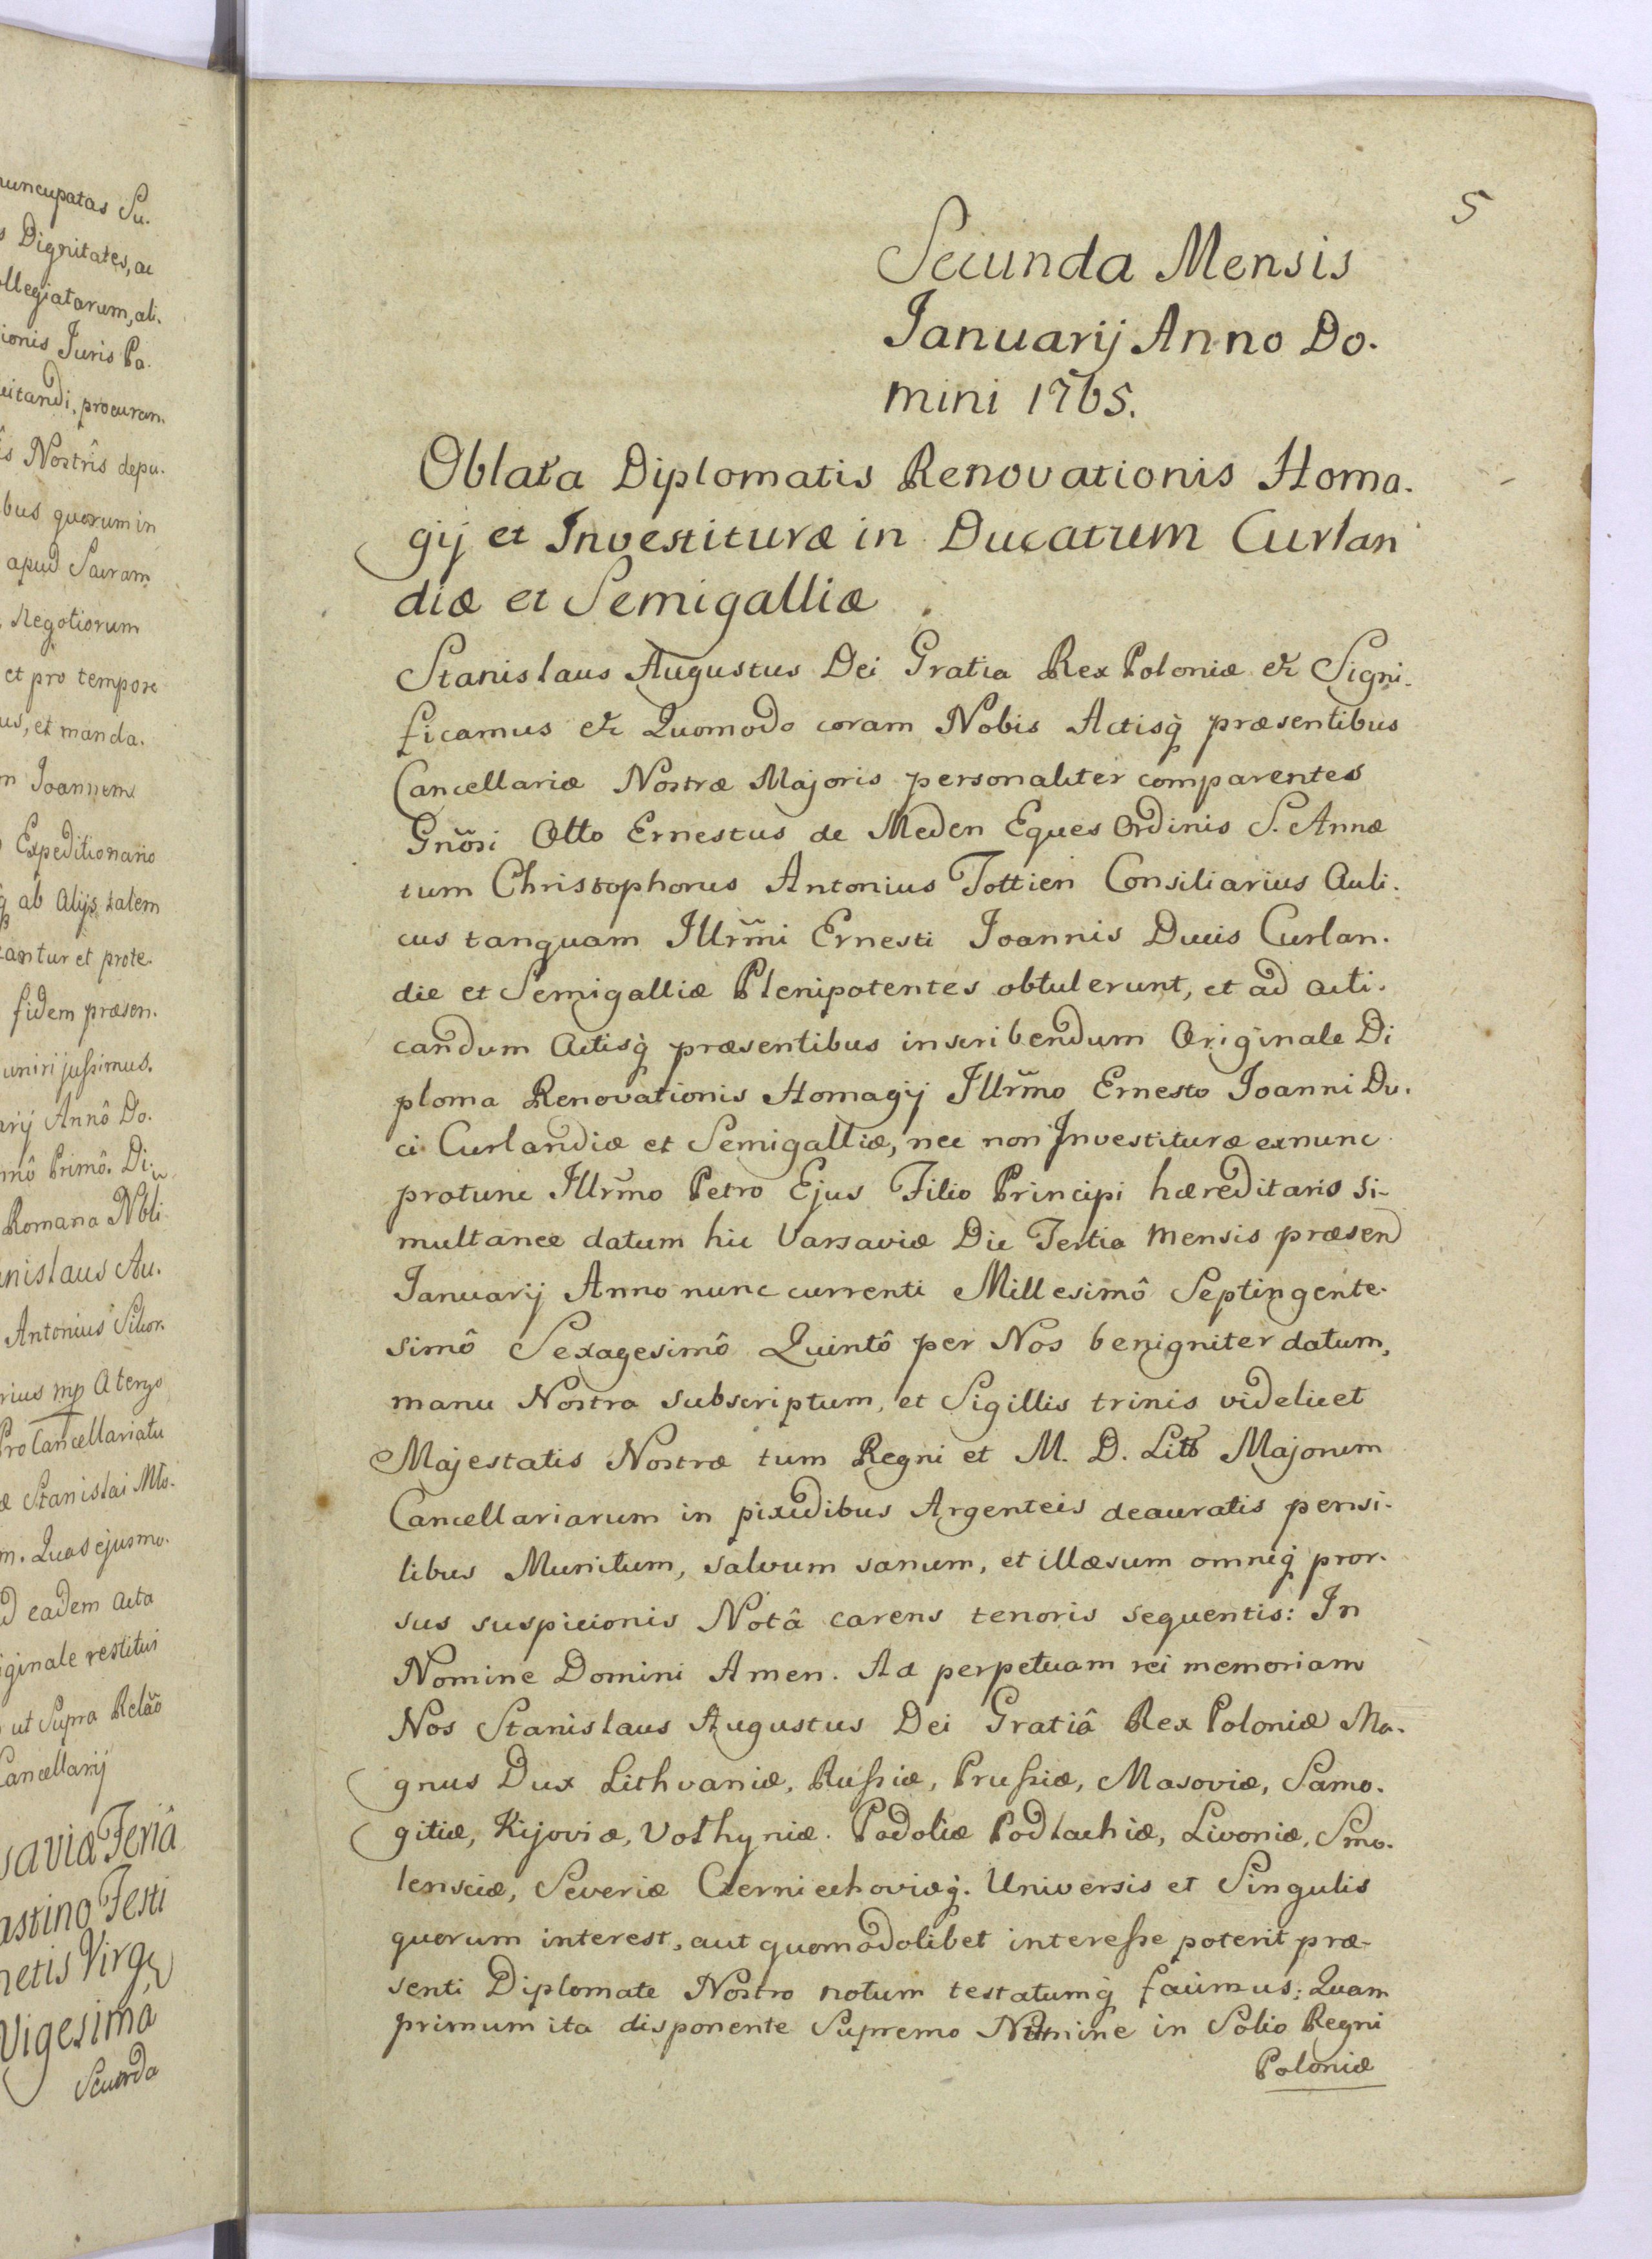 nuncupatas Su.
s Dignitates, ac
ollegiatarum, ali.
ionis Juris Pa.
uitandi, procuran.
is Nostrîs depu.
bus quorum in
apud Sacram
Negotiorum
et pro tempore
us, et manda.
m Joannem
Expeditionario
q̃ ab Alijs talem
antur et prote.
fidem præsen.
uniri jussimus.
arij Annô Do.
mô Primô. Di.
Romana Nbli
nislaus Au.
Antonius Sikor.
rius mp A tergo
Pro Cancellariatu
æ Stanislai Mło.
m. Quas ejusmo.
d eadem acta
iginale restitui
ut Supra Relaõ
Cancellarij
saviæ Feriâ
astino Festi
Virg
Vigesima
Secunda
5
Secunda Mensis
Januarij Anno Do.
mini 1765.
Oblata Diplomatis Renovationis Homa.
gij et Investituræ in Ducatum Curlan
diæ et Semigalliæ
Stanislaus Augustus Dei Gratia Rex Poloniæ &c Signi.
ficamus &c Quomodo coram Nobis Actisq̃ præsentibus
Cancellariæ Nostræ Majoris personaliter comparentes
Gnõsi Otto Ernestus de Meden Eques Ordinis S. Annæ
tum Christophorus Antonius Tottien Consiliarius Auli.
cus tanquam Illrm̃i Ernesti Joannis Ducis Curlan.
die et Semigalliæ Plenipotentes obtulerunt, et ad acti.
candum Actisq̃ præsentibus inscribendum Originale Di
ploma Renovationis Homagij Illrm̃o Ernesto Joanni Du.
ci Curlandiæ et Semigalliæ, nec non Investituræ exnunc
protunc Illrm̃o Petro Ejus Filio Principi hæreditario si-
multanee datum hic Varsaviæ Die Tertia mensis præsen
Januarij Anno nunc currenti Millesimô Septingente.
simô Sexagesimô Quintô per Nos benigniter datum,
manu Nostra subscriptum, et Sigillis trinis videlicet
Majestatis Nostræ tum Regni et M. D. Litt Majorum
Cancellariarum in pixidibus Argenteis deauratis pensi.
libus Munitum, salvum sanum, et illæsum omniq̃ pror.
sus suspicionis Notâ carens tenoris sequentis: In
Nomine Domini Amen. Ad perpetuam rei memoriam
Nos Stanislaus Augustus Dei Gratiâ Rex Poloniæ Ma.
gnus Dux Lithvaniæ, Russiæ, Prussiæ, Masoviæ, Samo.
gitiæ, Kijoviæ, Volhyniæ. Podoliæ Podlachiæ, Livoniæ, Smo.
lensciæ, Severiæ Czerniechoviæq̃. Universis et Singulis
quorum interest, aut quomodolibet interesse poterit præ-
senti Diplomate Nostro notum testatumq̃ facimus; Quam
primum ita disponente Supremo Numine in Solio Regni
Poloniæ